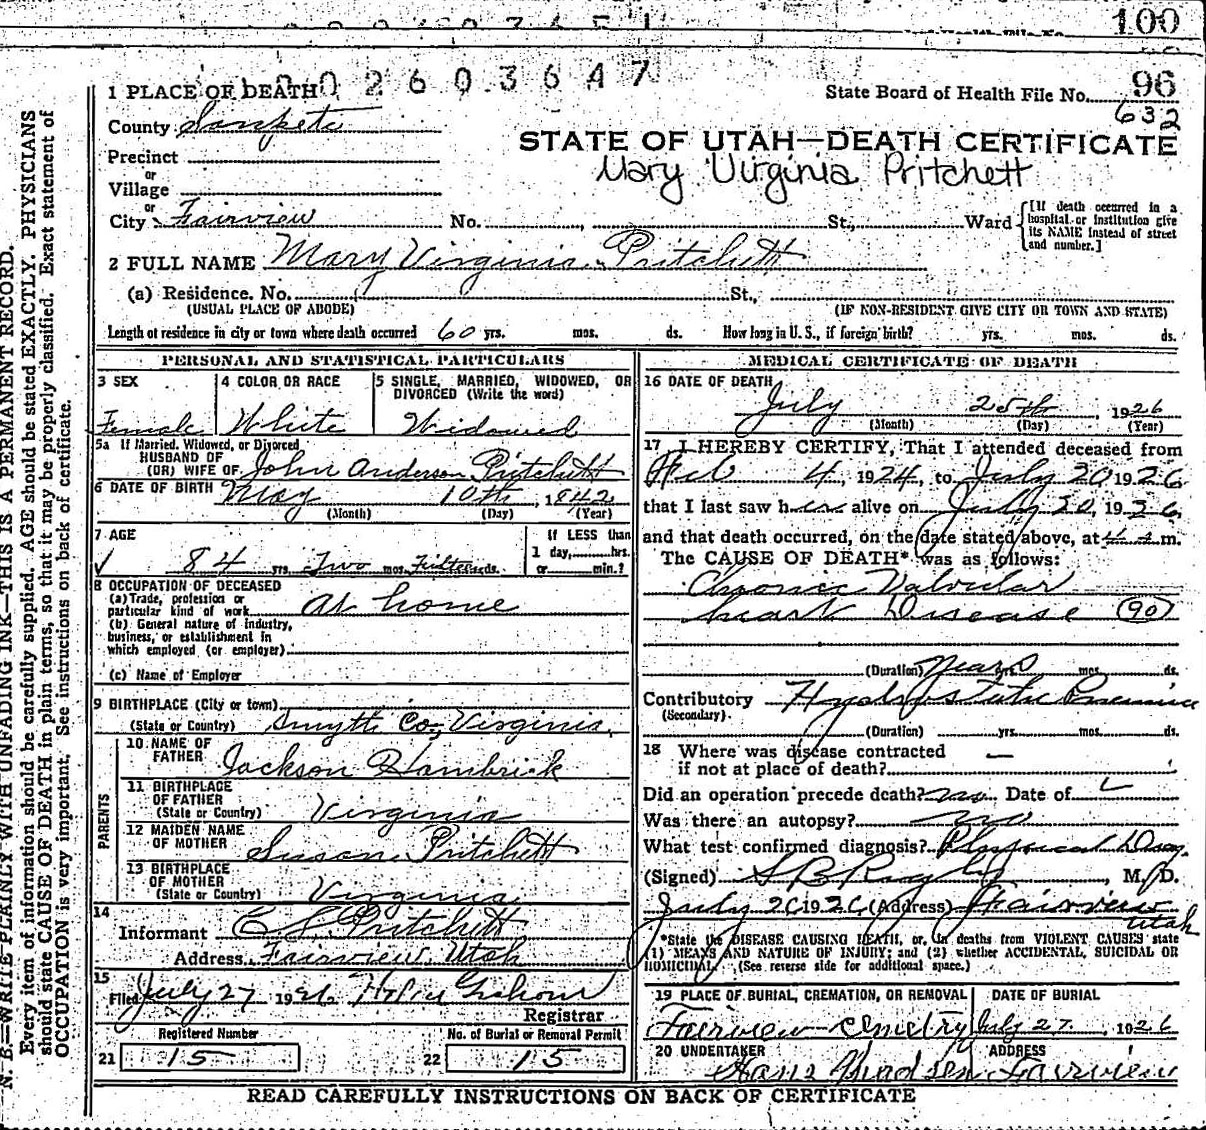 100
1 PLACE OF DEATH
0 0 2 6 0 3 6 4 7
State Board of Health File No. 96
632
County Sanpete
STATE OF UTAH—DEATH CERTIFICATE
Mary Virginia Pritchett
Precinct
or
Village
or
City Fairview No. , St., Ward
[If death occurred in a
hospital or institution give
its NAME instead of street
and number.]
2 FULL NAME Mary Virginia Pritchett
(a) Residence. No. St.,
(USUAL PLACE OF ABODE) (IF NON-RESIDENT GIVE CITY OR TOWN AND STATE)
Length of residence in city or town where death occurred 60 yrs. mos. ds. How long in U.S., if foreign birth? yrs. mos. ds.
PERSONAL AND STATISTICAL PARTICULARS
3 SEX
Female
4 COLOR OR RACE
White
5 SINGLE, MARRIED, WIDOWED, OR
DIVORCED (Write the word)
Widowed
5a If Married, Widowed, or Divorced
HUSBAND OF
(OR) WIFE OF John Anderson Pritchett
6 DATE OF BIRTH May 10th, 1842
(Month) (Day) (Year)
7 AGE
84 yrs. Two mos. Fifteen ds.
If LESS than
1 day, hrs.
or min.?
8 OCCUPATION OF DECEASED
(a) Trade, profession or
particular kind of work At home
(b) General nature of industry,
business, or establishment in
which employed (or employer)
(c) Name of Employer
9 BIRTHPLACE (City or town)
(State or Country) Smyth Co, Virginia.
PARENTS
10 NAME OF
FATHER Jackson Hambrick
11 BIRTHPLACE
OF FATHER
(State or Country) Virginia
12 MAIDEN NAME
OF MOTHER Susan Pritchett
13 BIRTHPLACE
OF MOTHER
(State or Country) Virginia
14
Informant Pritchett
Address Fairview Utah
15
Filed July 27 1926
Registrar
Registered Number
21 15
No. of Burial or Removal Permit
22 15
MEDICAL CERTIFICATE OF DEATH
16 DATE OF DEATH
July 25th, 1926
(Month) (Day) (Year)
17 I HEREBY CERTIFY, That I attended deceased from
Feb 4, 1924, to July 20 1926
that I last saw her alive on July 20, 1926,
and that death occurred, on the date stated above, at 4 a m.
The CAUSE OF DEATH* was as follows:
Chronic Valvular
heart Disease (90)
(Duration) years yrs. mos. ds.
Contributory Hydrostatic Pneumonia
(Secondary)
(Duration) yrs. mos. ds.
18 Where was disease contracted
if not at place of death? —
Did an operation precede death? no Date of
Was there an autopsy? no
What test confirmed diagnosis? Physical Diag.
(Signed) M. D.
July 26 1926 (Address) Fairview
Utah
*State the DISEASE CAUSING DEATH, or, in deaths from VIOLENT CAUSES state
(1) MEANS AND NATURE OF INJURY; and (2) whether ACCIDENTAL, SUICIDAL OR
HOMICIDAL. (See reverse side for additional space.)
19 PLACE OF BURIAL, CREMATION, OR REMOVAL
Fairview Cemetry
DATE OF BURIAL
July 27, 1926
20 UNDERTAKER
Hans Madsen
ADDRESS
Fairview
READ CAREFULLY INSTRUCTIONS ON BACK OF CERTIFICATE
N. B.—WRITE PLAINLY WITH UNFADING INK—THIS IS A PERMANENT RECORD.
Every item of information should be carefully supplied. AGE should be stated EXACTLY. PHYSICIANS
should state CAUSE OF DEATH in plain terms, so that it may be properly classified. Exact statement of
OCCUPATION is very important. See instructions on back of certificate.